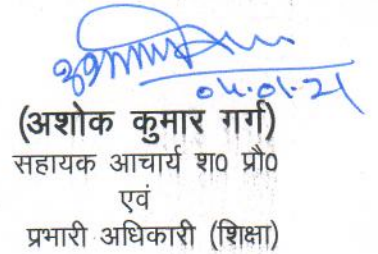 04.01.21
(अशोक कुमार गर्ग)
सहायक आचार्य श0 प्रौ0
एवं
प्रभारी अधिकारी (शिक्षा)